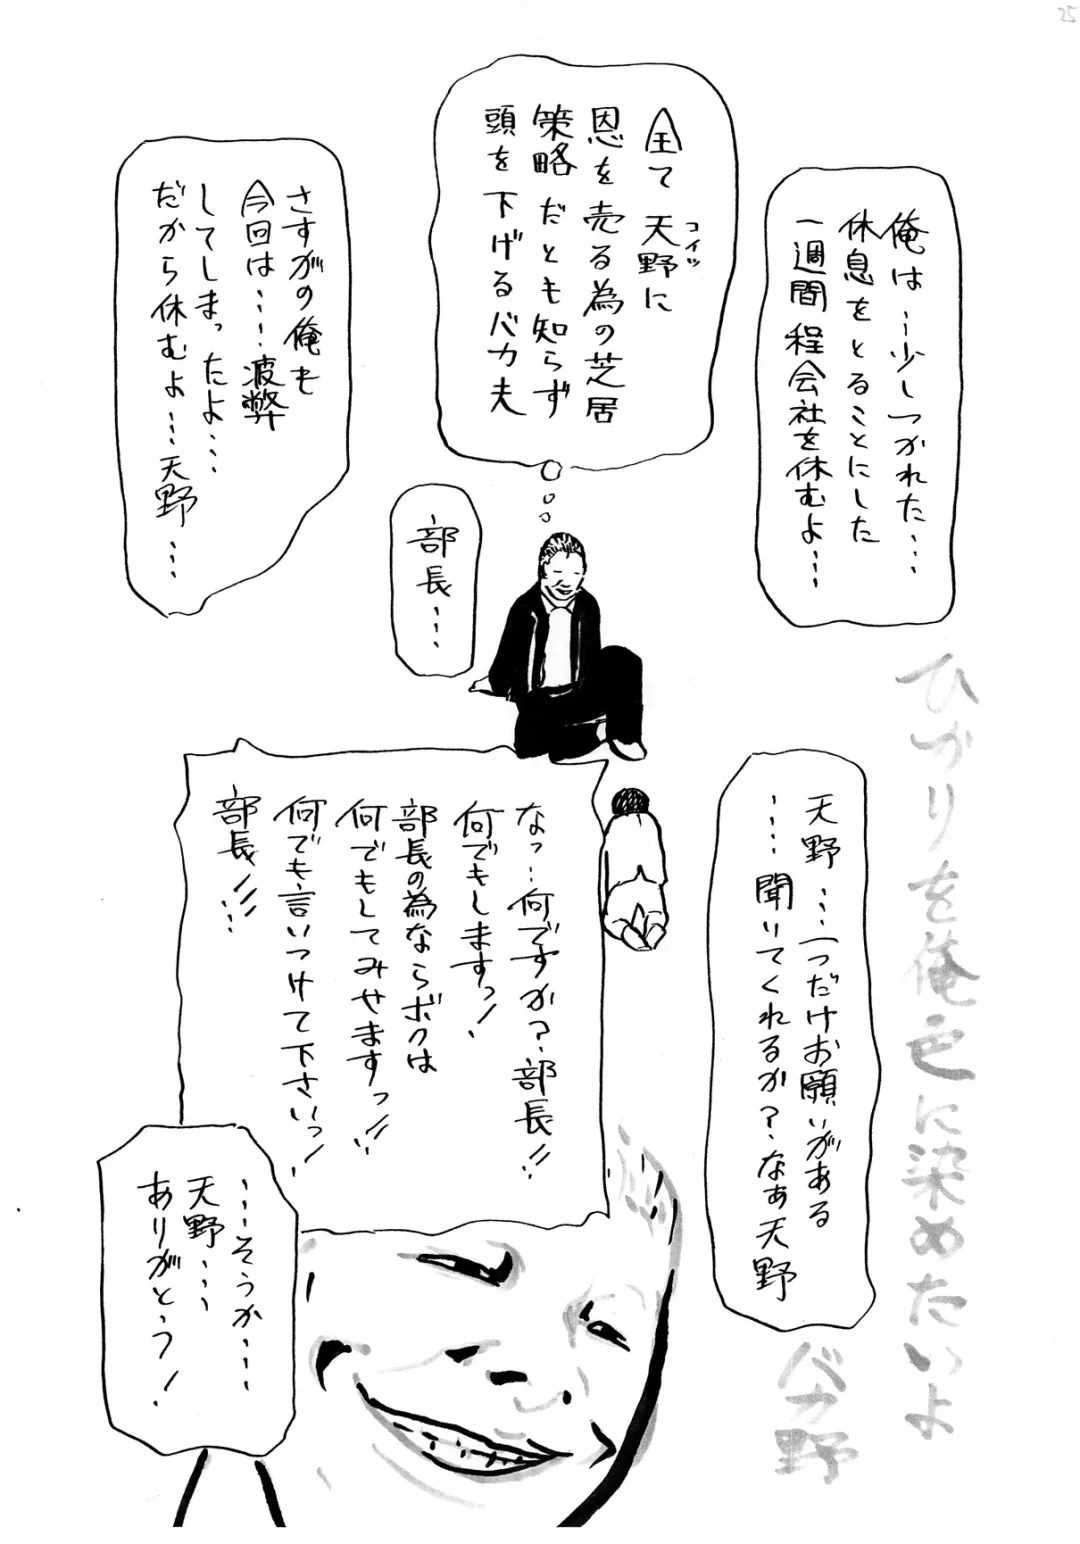 25
俺は…少しつかれた…
休息をとることにした
一週間程会社を休むよ…
全て天野に
コイツ
恩を売る為の芝居
策略だとも知らず
頭を下げるバカ夫
さすがの俺も
今回は‥‥疲弊
してしまったよ…
だから休むよ…天野…
部長…
天野…一つだけお願いがある
‥‥聞いてくれるか?なぁ天野
なっ…何ですか?部長!!
何でもしますっ!
部長の為ならボクは
何でもしてみせますっ!!
何でも言いつけて下さいっ!
部長!!…
…そうか…
天野…
ありがとう!
ひかりを俺色に染めたいよ
バカ野